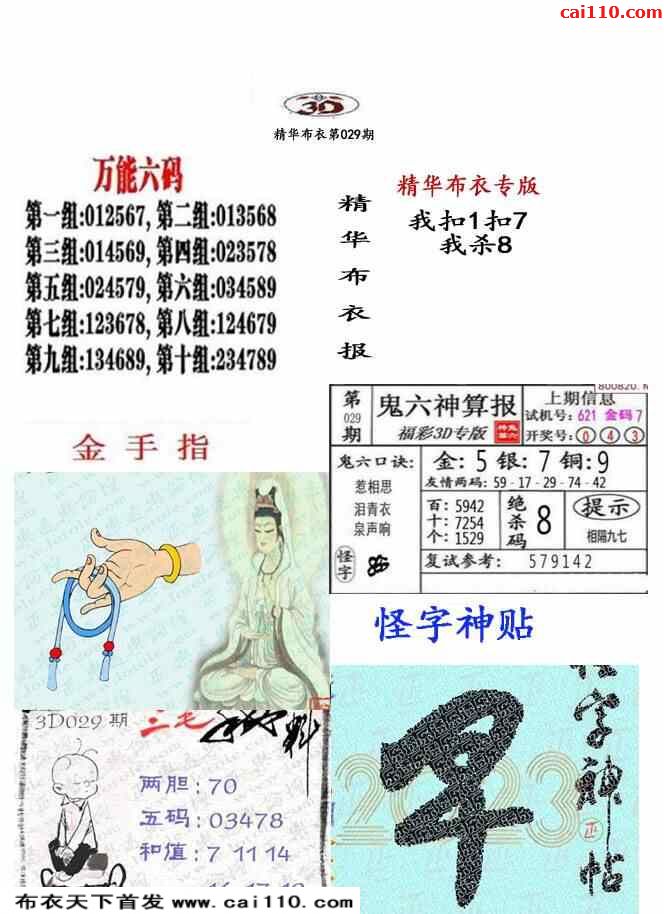 cai110.com
3D
精华布衣第029期
万能六码
第一组:012567,第二组:013568
第三组:014569,第四组:023578
第五组:024579,第六组:034589
第七组:123678,第八组:124679
第九组:134689,第十组:234789
精华布衣报
精华布衣专版
我扣1扣7
我杀8
金手指
800820.
第029期
鬼六神算报
福彩3D专版
上期信息
试机号:621 金码7
开奖号:043
鬼六口诀:
惹相思
泪青衣
泉声响
怪字
金:5 银:7 铜:9
友情两码:59-17-29-74-42
百:5942
十:7254
个:1529
绝杀码
8
提示
相隔九七
复试参考: 579142
怪字神贴
3D029期
三毛
料
两胆:70
五码:03478
和值:7 11 14
2023
怪字神帖
正
布衣天下首发 www.cai110.com